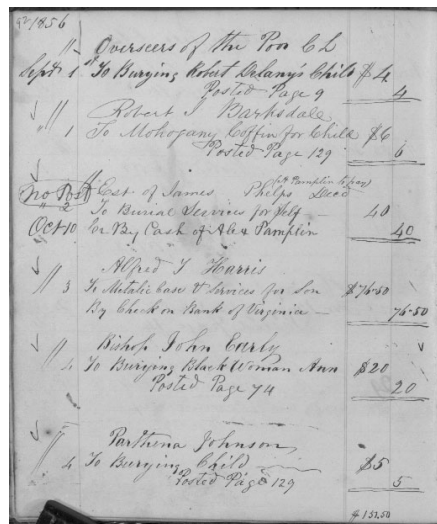 1856
" Overseers of the Poor C L
Sept 1st To Burying Robert Delany's Child $4
Posted Page 9 4
" Robert S Barksdale
" 1 To Mohogany Coffin for Child $6
Posted Page 129 6
No Post Est of James Phelps Decd (A Pamplin to pay)
" 2 To Burial Services for Self — 40
Oct 10 Cr By Cash of Alex Pamplin 40
" Alfred T Harris
" 3 To Metalic Case & Services for Son $76-50
By Check on Bank of Virginia — 76-50
" Bishop John Early
" 4 To Burying Black Woman Ann $20
Posted Page 74 20
" Parthena Johnson
" 4 To Burying Child $5
Posted Page 129 5
$151.50